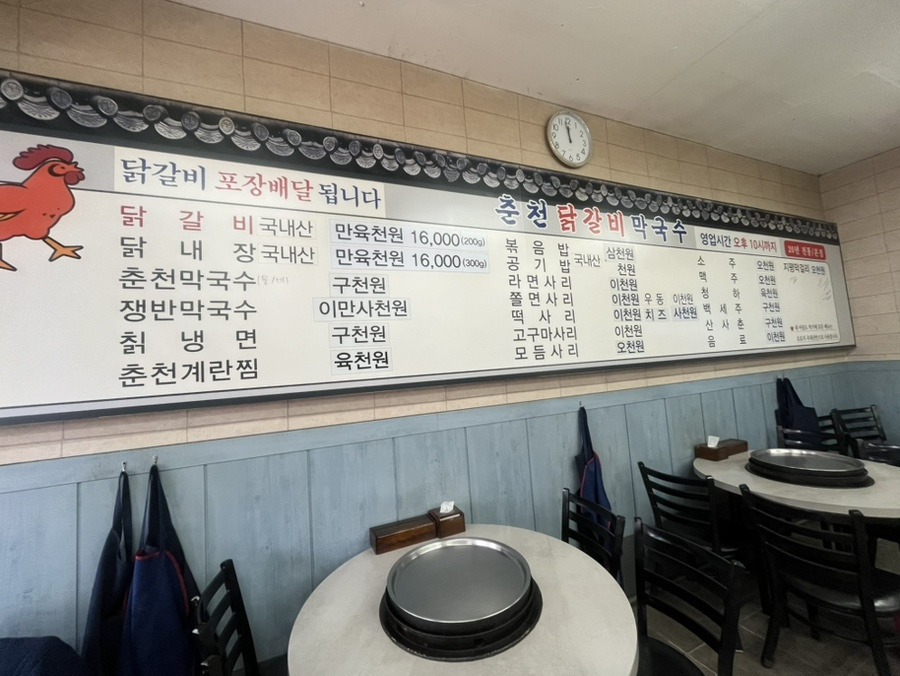 닭갈비 포장배달 됩니다
닭 갈 비 국내산 만육천원 16,000(200g)
닭 내 장 국내산 만육천원 16,000(300g)
춘천막국수 구천원
쟁반막국수 이만사천원
칡 냉 면 구천원
춘천계란찜 육천원
춘천닭갈비막국수
볶 음 밥 삼천원
공 기 밥 국내산 천원
라면사리 이천원
쫄면사리 이천원 우동 이천원
떡 사 리 이천원 치즈 사천원
고구마사리 이천원
모듬사리 오천원
영업시간 오후 10시까지
소 주 오천원
맥 주 오천원
청 하 육천원
백 세 주 구천원
산 사 춘 구천원
음 료 이천원
지평막걸리 오천원